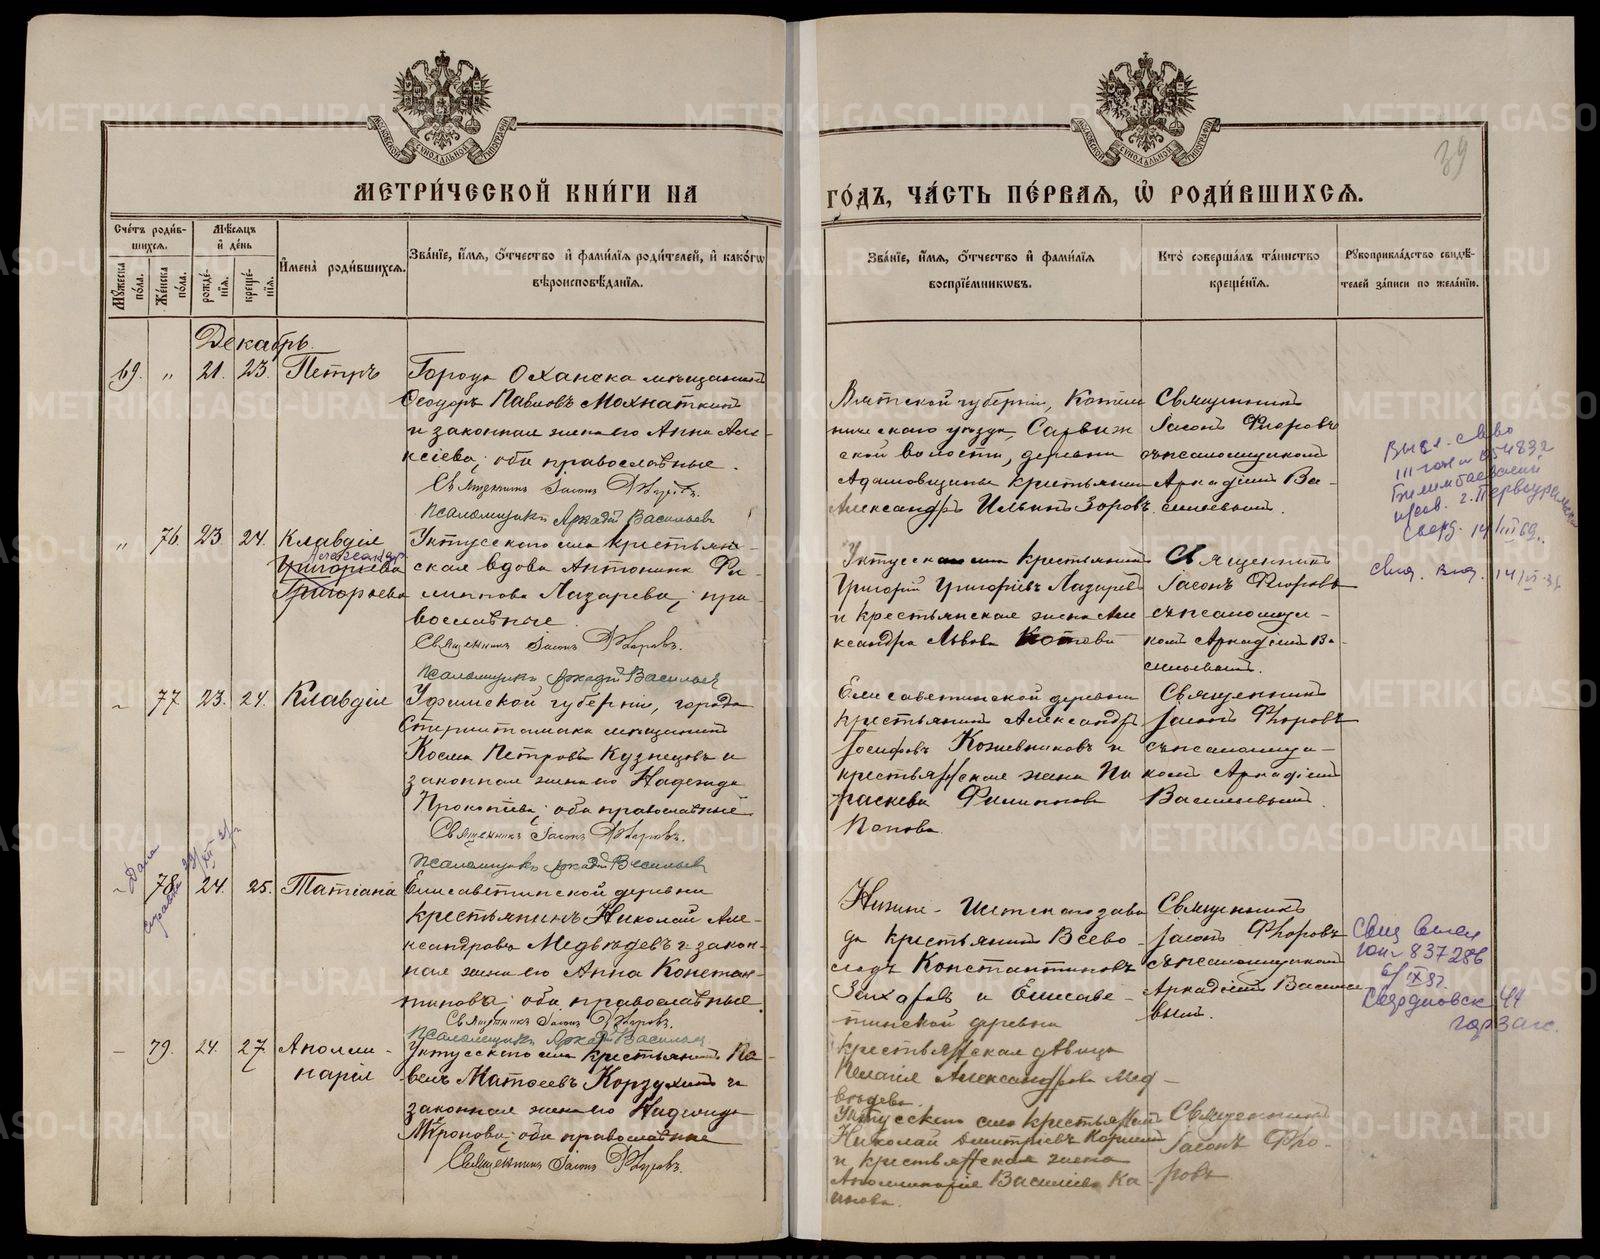 39
МЕТРИ́ЧЕСКОЙ КНИ́ГИ НА
ГО́ДЪ, ЧА́СТЬ ПЕ́РВАЯ, Ѽ РОДИ́ВШИХСЯ.
Сче́тъ роди́в-
шихся.
Му́жеска по́ла.
Же́нска по́ла.
Мѣ́сяцъ
и҆ де́нь
рожде́-
нїя.
креще́-
нїя.
И҆мена̀ роди́вшихся.
Зва́нїе, и҆́мя, ѻ҆́тчество и҆ фами́лїя роди́телей, и҆ како́гѡ
вѣроисповѣ́данїя.
Зва́нїе, и҆́мя, ѻ҆́тчество и҆ фами́лїя
воспрїе́мникѡвъ.
Кто̀ соверша́лъ та́инство
креще́нїя.
Рꙋкоприкла́дство свидѣ́-
телей за́писи по жела́нїю.
Декабрь.
69. " 21. 23. Петръ
Города Оханска мѣщанинъ
Ѳеодоръ Павловъ Мохнаткинъ
и законная жена его Анна Але-
ксіева; оба православные.
Священникъ Іасонъ Флоровъ.
Псаломщикъ Аркадій Васильевъ
Вятской губерніи, Котель
ническаго уѣзда,
ской волости, деревни
Адамовщины крестьянинъ
Александръ Ильинъ Зоровъ.
Священникъ
Іасонъ Флоровъ
съ псаломщикомъ
Аркадіемъ Ва-
сильевымъ.
" 76. 23 24. Клавдія
Александр.
Григорьева
Григорьева
Уктусскаго села крестьян-
ская вдова Антонина Фи-
липпова Лазарева; пра-
вославные.
Священникъ Іасонъ Флоровъ.
Псаломщикъ Аркадій Васильевъ
Уктусскаго села крестьянинъ
Григорій Григоріевъ Лазаревъ
и крестьянская жена Але
ксандра Львова Котова
Священникъ
Іасонъ Флоровъ
съ псаломщи-
комъ Аркадіемъ Ва-
сильевымъ.
14/III 69.
14/VI-
77. 23. 24. Клавдія
Уфимской губерніи, города
Стерлитамака мѣщанинъ
Косма Петровъ Кузнецовъ и
законная жена его Надежда
Прокопіева; оба православные
Священникъ Іасонъ Флоровъ.
Псаломщикъ Аркадій Васильевъ
Елисаветинской деревни
крестьянинъ Александръ
Іосифовъ Кожевниковъ и
крестьянская жена Па
раскева Филиппова
Попова.
Священникъ
Іасонъ Флоровъ
съ псаломщи-
комъ Аркадіемъ
Васильевымъ.
Дана
справка
78. 24. 25. Татіана
Елисаветинской деревни
крестьянинъ Николай Але-
ксандровъ Медвѣдевъ и закон-
ная жена его Анна Констан-
тинова; оба православные.
Священникъ Іасонъ Флоровъ.
Псаломщикъ Аркадій Васильевъ
Нижне-Исетскаго заво
да крестьянинъ Всево-
лодъ Константиновъ
Захаровъ и Елисаве-
тинской деревни
крестьянская дѣвица
Пелагія Александрова Мед-
вѣдева.
Священникъ
Іасонъ Флоровъ
съ псаломщикомъ
Аркадіемъ Василье
вымъ.
837286
Свердловск
79. 24. 27. Аполли-
нарія
Уктусскаго села крестьянинъ Па-
велъ Матѳеевъ Корзухинъ и
законная жена его Надежда
Миронова; оба православные
Священникъ Іасонъ Флоровъ.
Уктусскаго села крестьянинъ
Николай Димитріевъ
и крестьянская жена
Аполлинарія Васильева Ка-
Священникъ
Іасонъ Фло-
ровъ